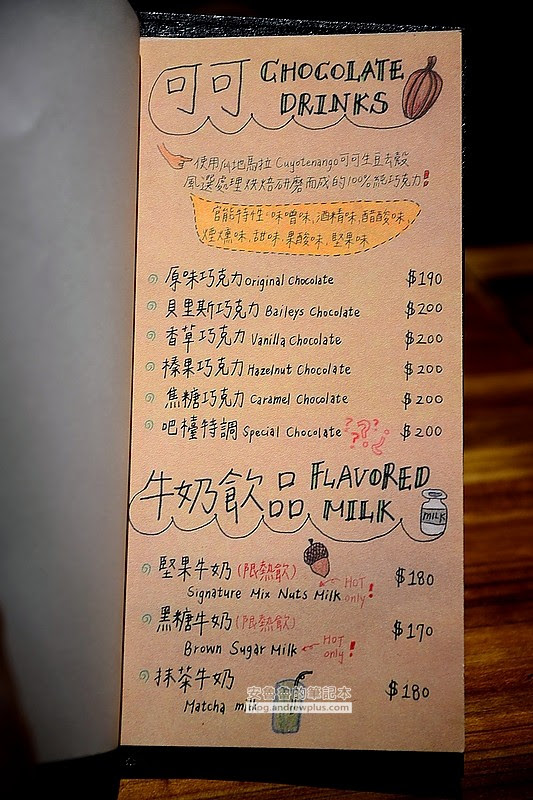 可可 CHOCOLATE
DRINKS
使用瓜地馬拉 Cuyotenango可可生豆去殼
風選處理烘焙研磨而成的100%純巧克力!
官能特性:味噌味,酒精味,醋酸味,
煙燻味,甜味,果酸味,堅果味
原味巧克力 Original Chocolate $190
貝里斯巧克力 Baileys Chocolate $200
香草巧克力 Vanilla Chocolate $200
榛果巧克力 Hazelnut Chocolate $200
焦糖巧克力 Caramel Chocolate $200
吧檯特調 Special Chocolate ??? $200
牛奶飲品 FLAVORED
MILK
MILK
堅果牛奶(限熱飲) $180
Signature Mix Nuts Milk HOT only!
黑糖牛奶(限熱飲) $170
Brown Sugar Milk HOT only!
抹茶牛奶 $180
Matcha milk
安魯魯的筆記本
blog.andrewplus.com